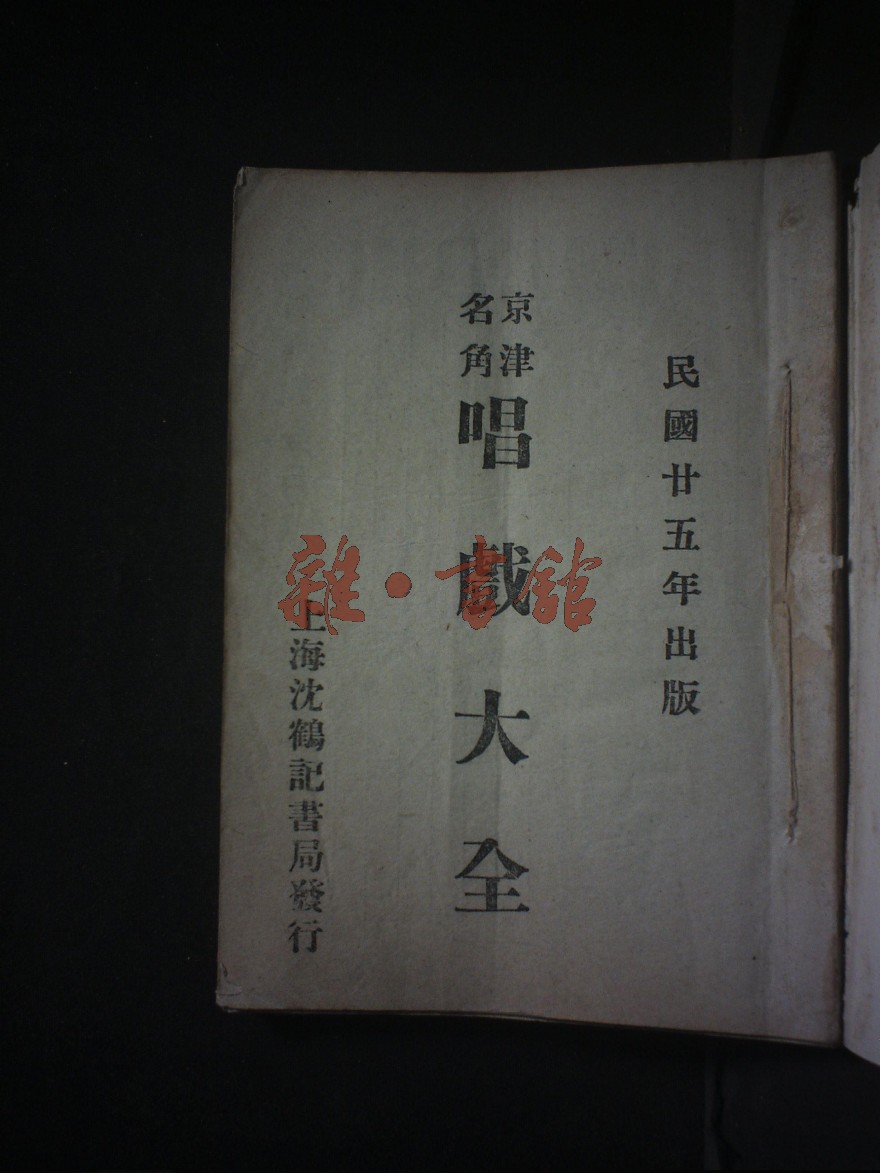 民國廿五年出版
京津
名角
唱戲大全
上海沈鶴記書局發行
雜·書館